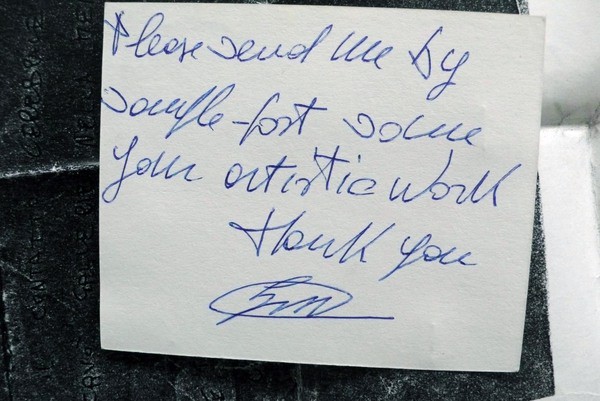 Please send me by
sample-post some
your artistic work
thank you